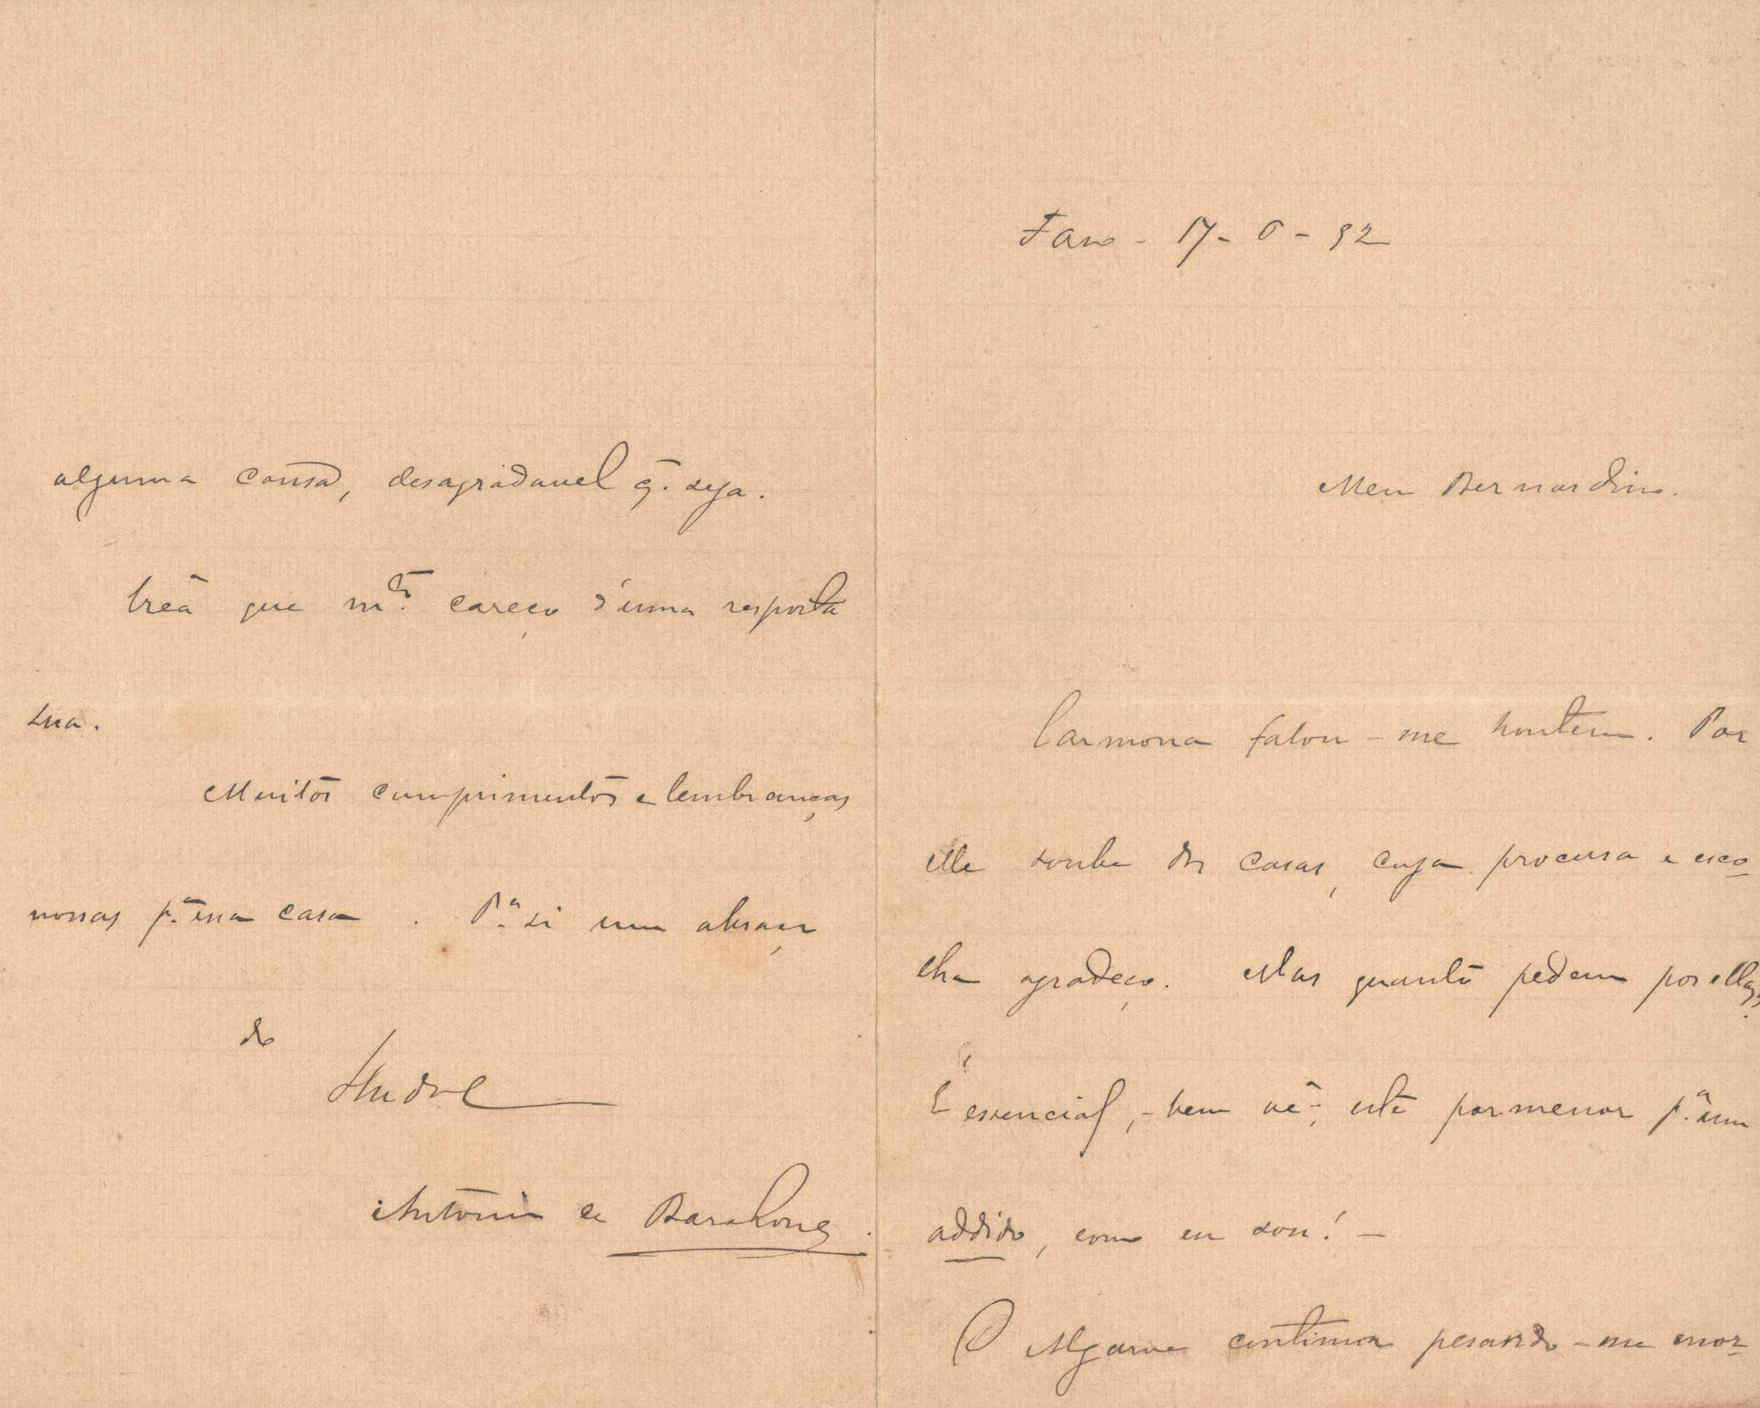 Faro - 17- 6 - 92
Meu Bernardino.
Carmona falou-me hontem. Por
elle soube das casas, cuja procura e esco
lha agradeço. Mas quanto pedem por ellas?
É essencial, - bem vê -, este pormenor p.ª um
addido, como eu sou! -
O Algarve continua pesando-me enor
alguma cousa, desagradavel q. seja.
Creia que m.to careço d'uma resposta
sua.
Muitos cumprimentos e lembranças
nossas p.ª essa casa. P.ª si um abraço
do
Antonio de Barahona.